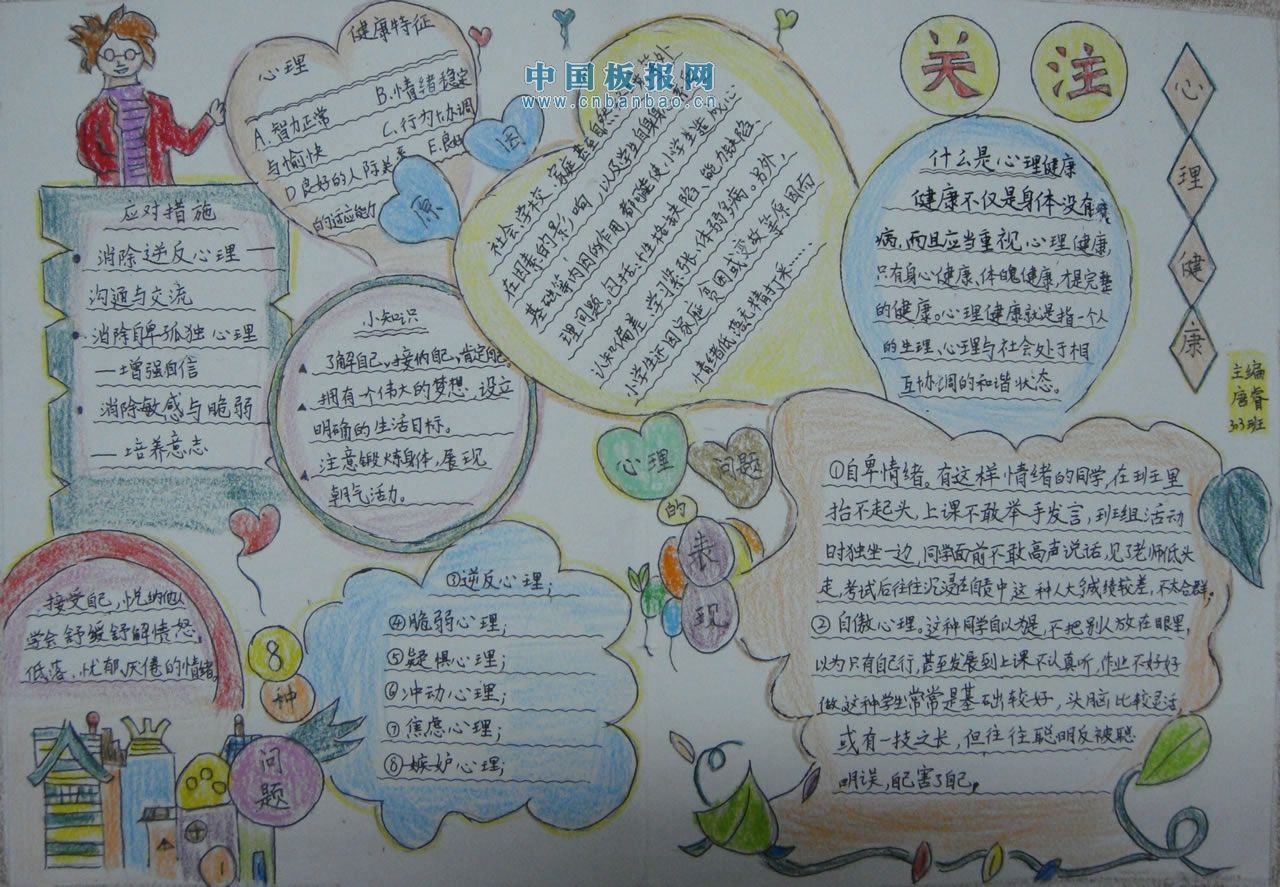 中国板报网
www.cnbanbao.cn
关注
心理健康
主编
唐睿
303班
心理
健康特征
A.智力正常
B.情绪稳定
与愉快
C.行为协调
D良好的人际关系
E.良好
的适应能力
原因
社会、学校、家庭甚至自然
在因素的影响,以及学生自身身
基础等内因的作用,都可能使小学生造成心
理问题。包括:个性格缺陷、能力缺陷、
认知偏差、学习紧张、体弱多病。另外,
小学生还因家庭贫困或变故等原因而
情绪低落,无精打采……
什么是心理健康
健康不仅是身体没有疾
病,而且应当重视心理健康,
只有身心健康、体魄健康,才是完整
的健康。心理健康就是指一个人
的生理、心理与社会处于相
互协调的和谐状态。
应对措施
消除逆反心理——
沟通与交流
消除自卑孤独心理
——增强自信
消除敏感与脆弱
——培养意志
小知识
了解自己,接纳自己,肯定自己。
拥有一个伟大的梦想,设立
明确的生活目标。
注意锻炼身体,展现
朝气活力。
心理问题
的
表现
①自卑情绪。有这样情绪的同学,在班里
抬不起头,上课不敢举手发言,班组活动
时独坐一边,同学面前不敢高声说话,见了老师低头
走,考试后往往沉浸在自责中这种人大多成绩较差,不太合群。
②自傲心理。这种同学自以为是,不把别人放在眼里,
以为只有自己行,甚至发展到上课不认真听,作业不好好
做这种学生常常是基础较好,头脑比较灵活
或有一技之长,但往往聪明反被聪
明误,自己害了自己。
8种问题
③逆反心理;
④脆弱心理;
⑤疑惧心理;
⑥冲动心理;
⑦焦虑心理;
⑧嫉妒心理;
接受自己,悦纳他人
学会舒缓舒解愤怒,
低落、忧郁、厌倦的情绪。